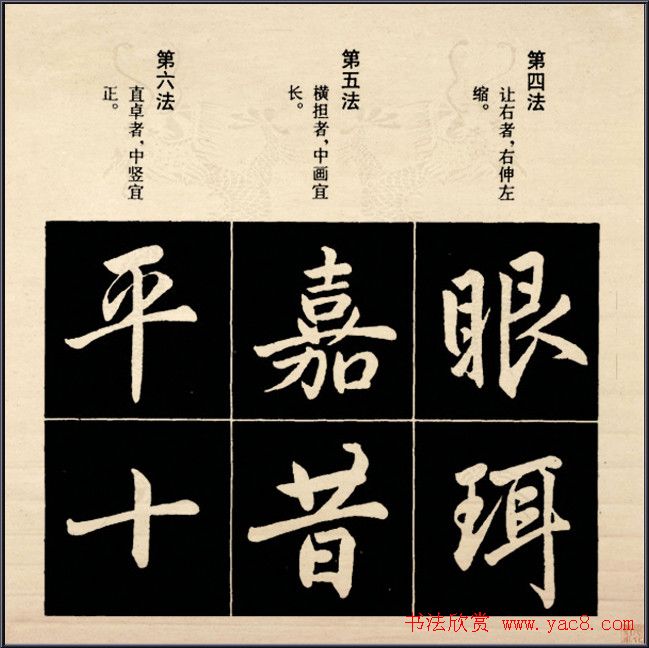 第四法
让右者，右伸左
缩。
第五法
横担者，中画宜
长。
第六法
直卓者，中竖宜
正。
眼
珥
嘉
昔
平
十
书法欣赏 www.yac8.com